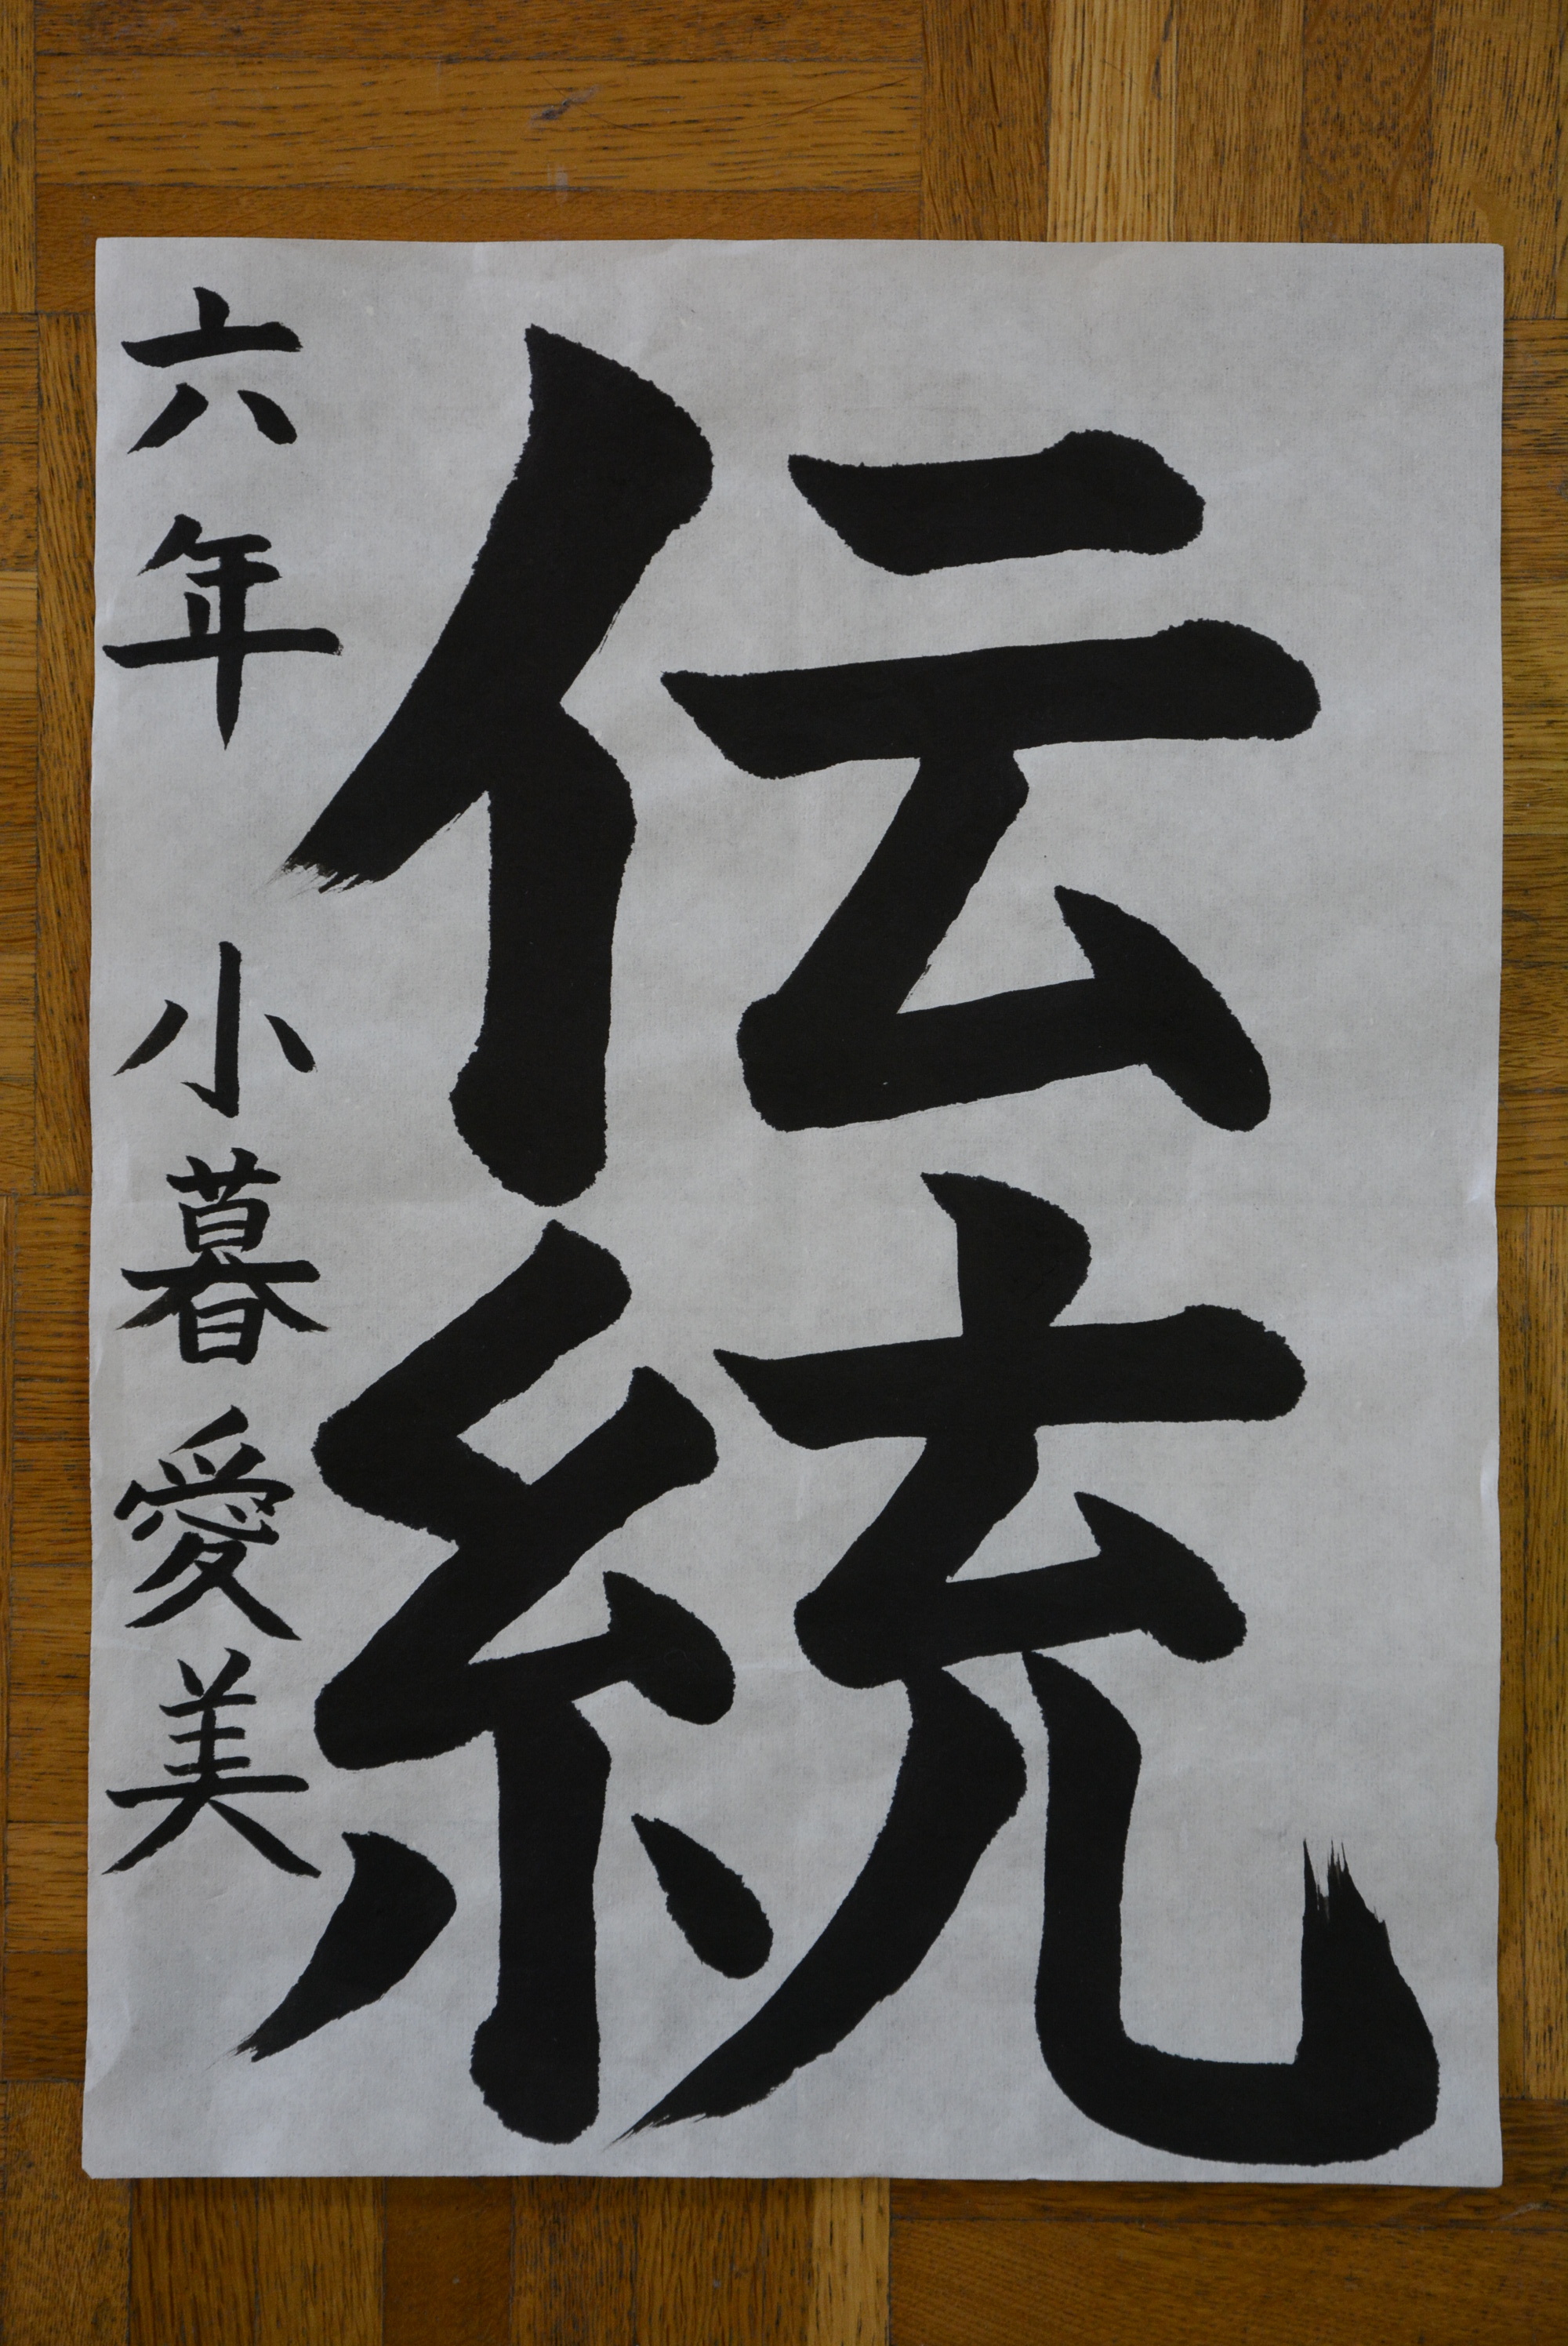 伝統
六年 小暮愛美